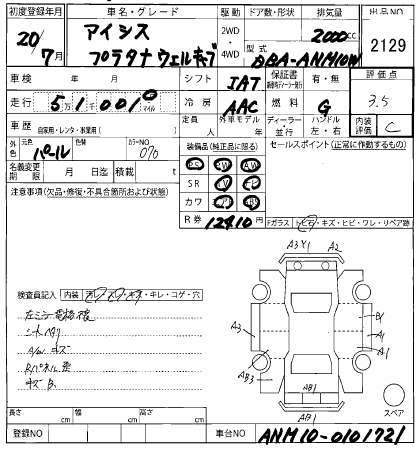 初度登録年月 車名・グレード 駆動 ドア数・形状 排気量 出品NO
20/7月 アイシス プラタナウェルキャブ 2WD・4WD 2000cc 2129
型式 DBA-ANM10W
車検 年 月 シフト IAT 保証書 有・無 評価点
走行 5万1千0010 マイル 冷房 AAC 燃料 G 3.5
車歴 自家用・レンタ・事業用( ) 定員 人 外車モデル 年 ディーラー・並行 ハンドル 左・右 内装評価 C
外色 元色 パール 色替 カラーNO 070
装備品(純正品に限る) セールスポイント(正常に作動するもの)
名義変更期限 月 日迄 積載 t
PS PW AW
注意事項(欠品・修復・不具合箇所および状態)
SR TV
カワ
R券 12410円
Fガラス トビ石・キズ・ヒビ・ワレ・リペア跡
A3 Y1 A2
検査員記入 内装 汚レ・スレ・キズ・キレ・コゲ・穴
左ミラー電格
A/Wキズ
Rパネル歪
キズB.
A3 B1 A1 A1
AB3 AB1 AB1
スペア
長さ cm 幅 cm 高さ cm
登録NO 車台NO ANM10-0101721